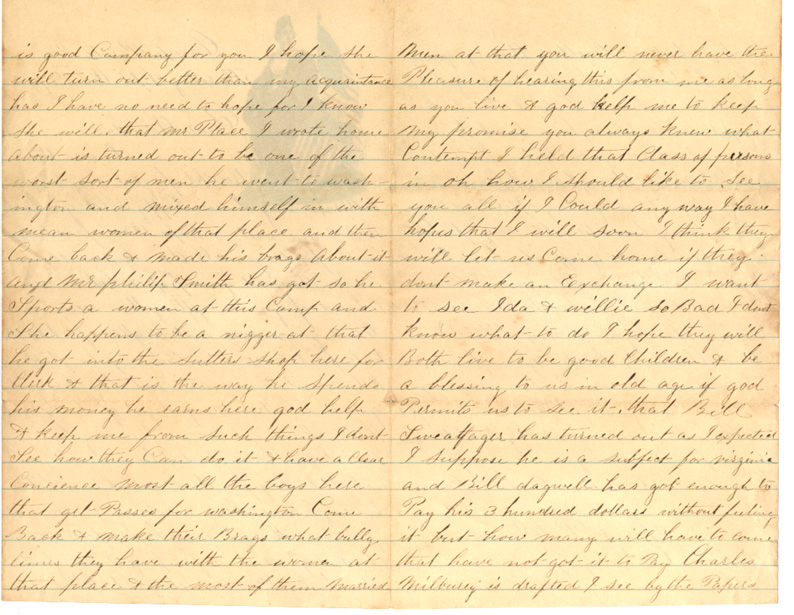 is good Company for you I hope she
will turn out better than my acquaintance
has I have no need to hope for I know
she will. that Mr Place I wrote home
about is turned out to be one of the
worst sort of men he went to wash-
ington and mixed himself in with
mean women of that place and then
Come back & made his brags about it
and Mr philip Smith has got so he
Sports a women at this Camp and
She happens to be a nigger at that
he got into the Sutters shop here for
Clerk & that is the way he spends
his money he earns here god help
& keep me from such things I dont
See how they Can do it & have a Clear
Concience most all the boys here
that get Passes for washington Come
Back & make their Brags what bully
times they have with the women at
that place & the most of them Married
Men at that you will never have the
Pleasure of hearing this from me as long
as you live & god help me to keep
My promise you always knew what
Contempt I held that Class of persons
in oh how I should like to see
you all if I Could any way I have
hopes that I will soon I think they
will let us Come home if they
dont make an Exchange I want
to see Ida & willie so Bad I dont
know what to do I hope they will
Both live to be good Children & be
a blessing to us in old age if god
Permits us to see it. that Bill
has turned out as I expected
I suppose he is a subject for virginia
and Bill dagwell has got enough to
Pay his 3 hundred dollars without feeling
it but how many will have to come
that have not got it to Pay Charles
Milburey is drafted I see by the Papers